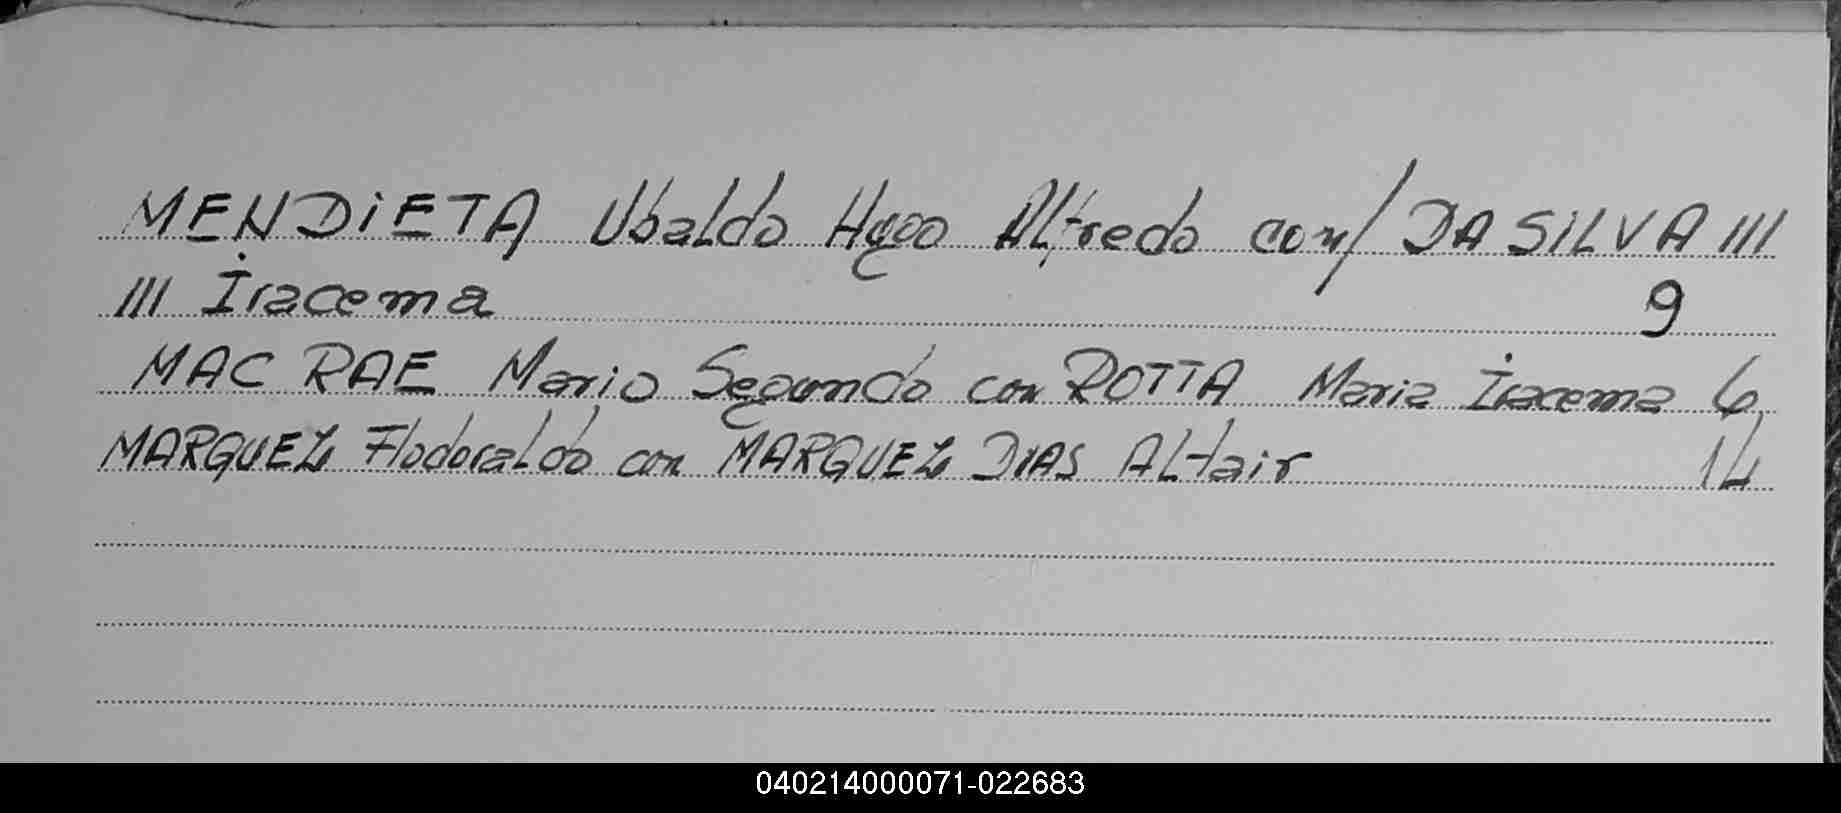 MENDiETA Ubaldo Hugo Alfredo con/ DA SiLVA ///
/// Iracema 9
MAC RAE Mario Segundo con ROTTA Maria Iracema 6
MARQUEZ Flodoraldo con MARQUEZ DIAS Altair 14
040214000071-022683